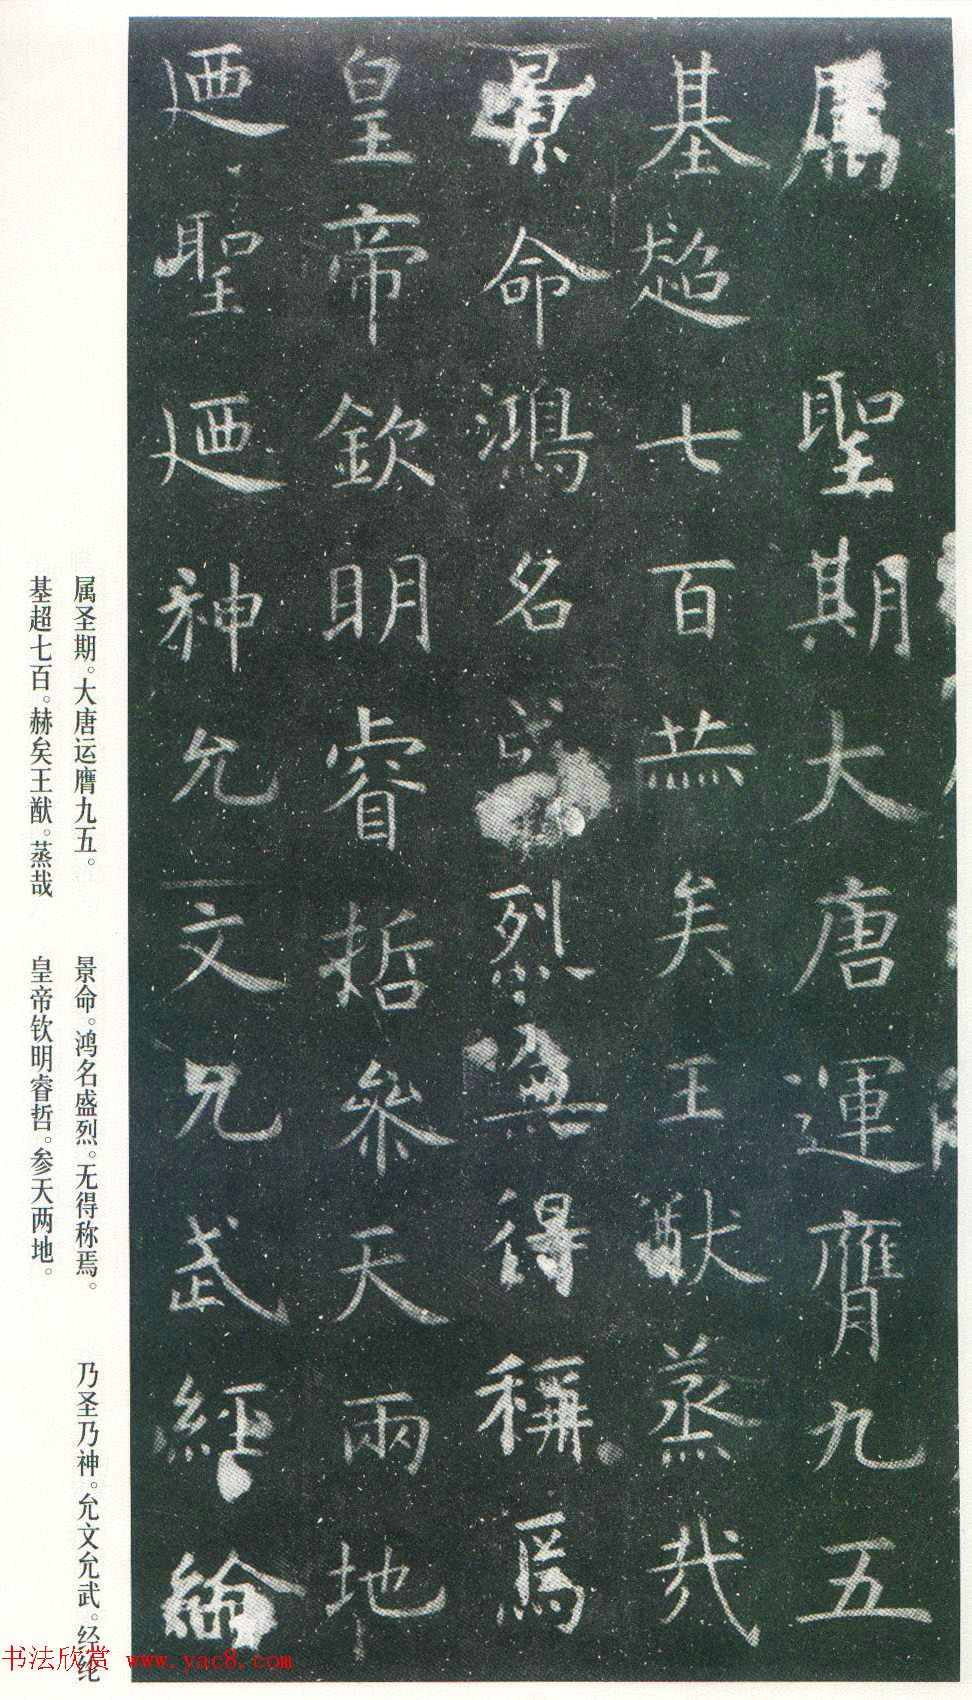 属聖期大唐運膺九五
基超七百烾矣王猷蒸哉
景命鴻名盛烈無得稱焉
皇帝欽明睿哲叅天兩地
迺聖迺神允文允武經綸
属圣期。大唐运膺九五。
基超七百。赫矣王猷。蒸哉
景命。鸿名盛烈。无得称焉。
皇帝钦明睿哲。参天两地。
乃圣乃神。允文允武。经纶
书法欣赏 www.yac8.com